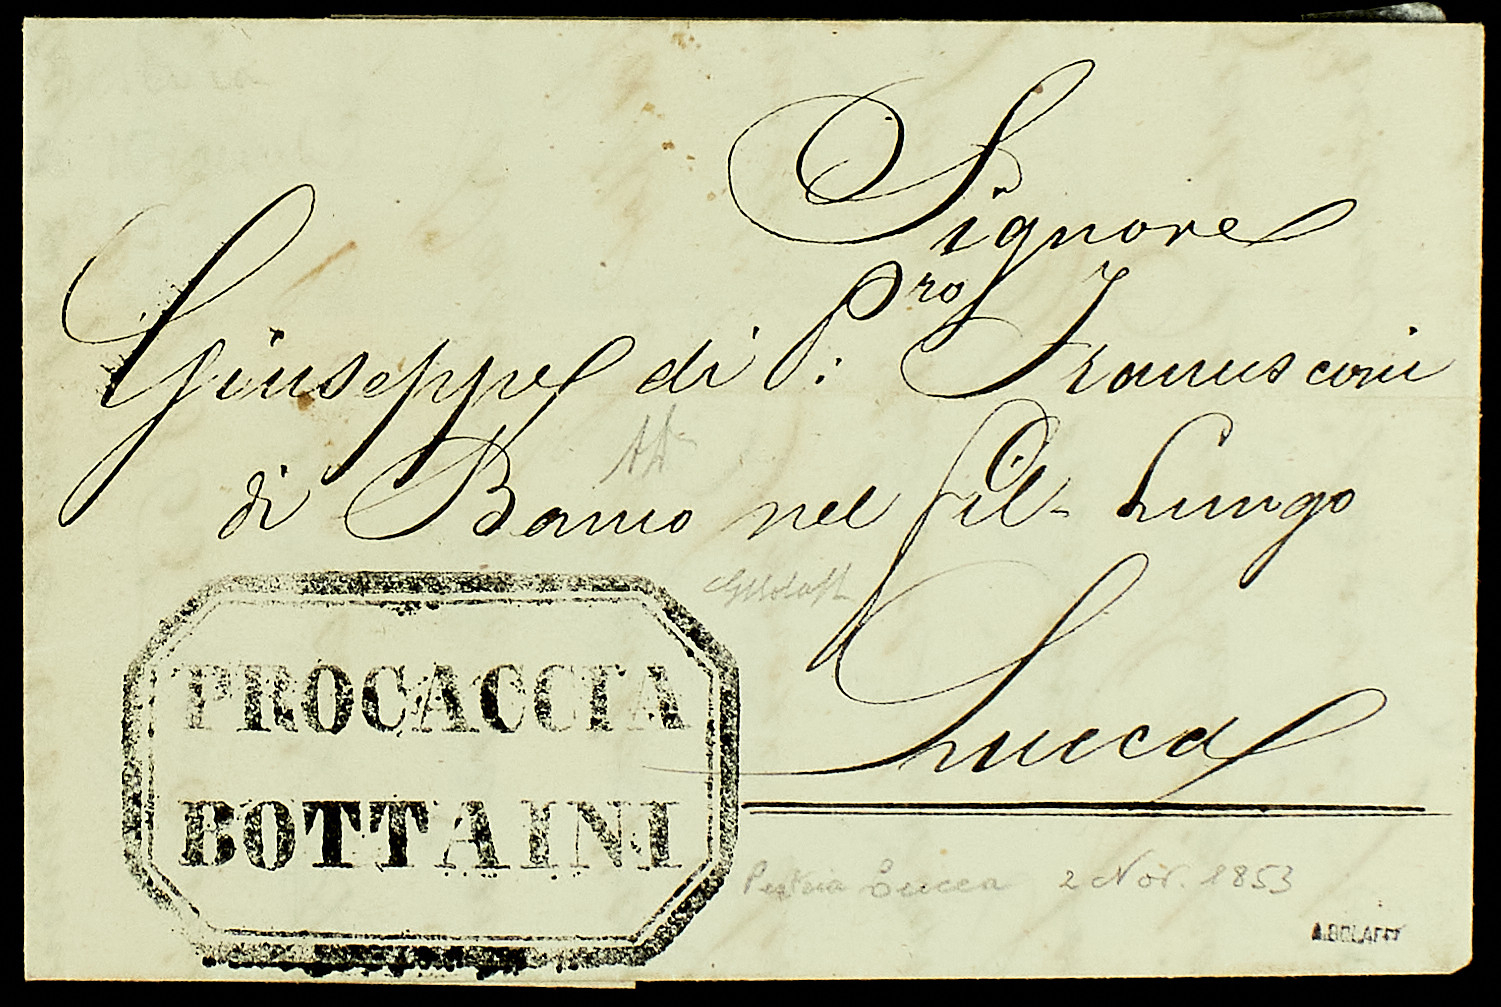 Signore
Giuseppe di P:ro Franusconi
di Banco nel Fil-Lungo
Lucca
PROCACCIA
BOTTAINI
Pescia Lucca 2 Nov. 1853
A.BOLAFFI